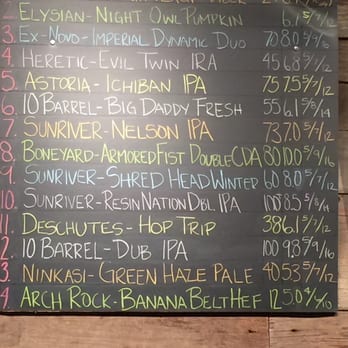 2. Elysian-Night Owl Pumpkin 6.7 5/7/12
3. Ex-Novo-Imperial Dynamic Duo 70 8.0 7/9/16
4. Heretic-Evil Twin IRA 45 6.8 5/7/12
5. Astoria-Ichiban IPA 75 7.5 5/7/12
6. 10 Barrel-Big Daddy Fresh 55 6.1 5/8/14
7. Sunriver-Nelson IPA 73 7.0 5/7/12
8. Boneyard-Armored Fist Double CDA 80 10.0 5/9/16
9. Sunriver-Shred Head Winter 60 8.0 5/7/12
10. Sunriver-ResinNation Dbl. IPA 100 8.5 5/8/14
11. Deschutes-Hop Trip 38 6.1 5/7/12
2. 10 Barrel-Dub IPA 100 9.3 5/9/16
3. Ninkasi-Green Haze Pale 40 5.3 5/7/12
4. Arch Rock-Banana Belt Hef 12 5.0